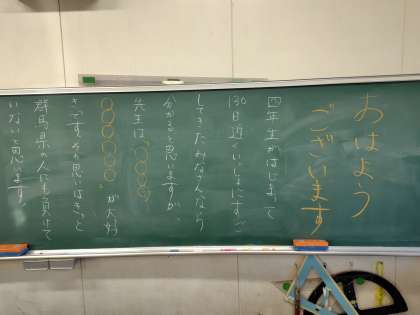 おはよう
ございます
四年生がはじまって
130日近くいっしょにすご
してきたみなさんなら
分かると思いますが、
先生は、〇〇〇〇
〇〇〇〇〇が大好
きです。その思いはきっと
群馬県の人にも負けて
いないと思います。